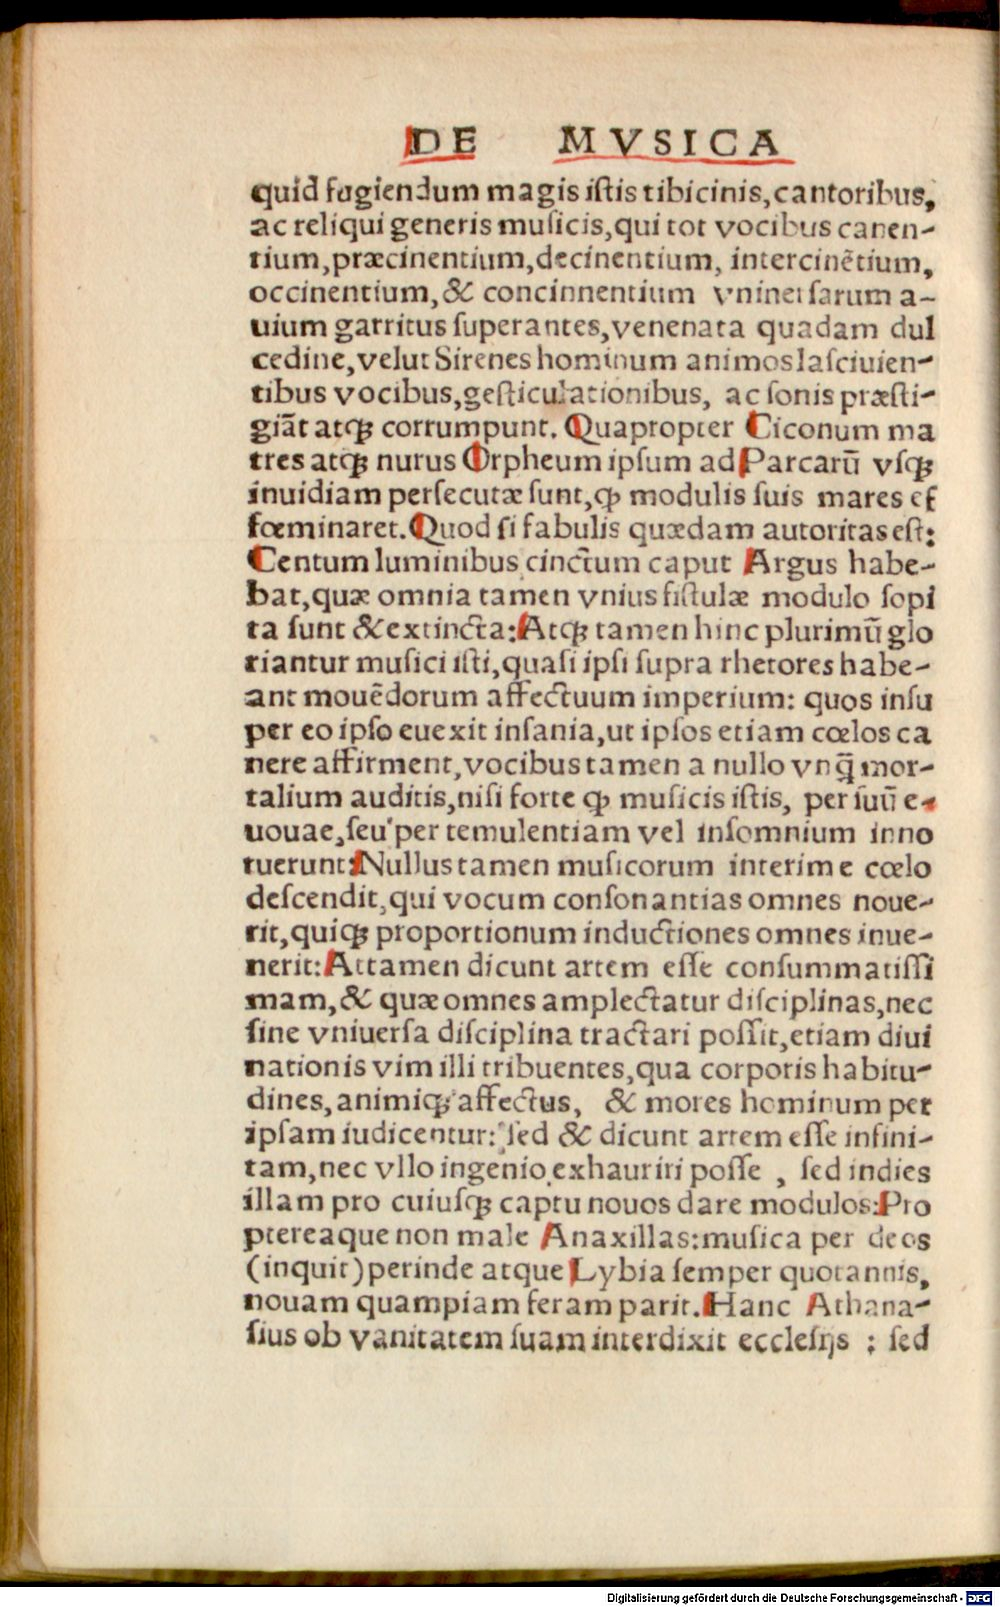 DE MVSICA
quid fugiendum magis iſtis tibicinis, cantoribus,
ac reliqui generis muſicis, qui tot vocibus canen-
tium, præcinentium, decinentium, intercinẽtium,
occinentium, & concinnentium vniuerſarum a-
uium garritus ſuperantes, venenata quadam dul
cedine, velut Sirenes hominum animos laſciuien-
tibus vocibus, geſticulationibus, ac ſonis præſti-
giãt atq; corrumpunt. Quapropter Ciconum ma
tres atq; nurus Orpheum ipſum ad Parcarũ vſq;
inuidiam perſecutæ ſunt, ꝙ modulis ſuis mares ef
fœminaret. Quod ſi fabulis quædam autoritas eſt:
Centum luminibus cinctum caput Argus habe-
bat, quæ omnia tamen vnius fiſtulæ modulo ſopi
ta ſunt & extincta: Atq; tamen hinc plurimũ glo
riantur muſici iſti, quaſi ipſi ſupra rhetores habe-
ant mouẽdorum affectuum imperium: quos inſu
per eo ipſo euexit inſania, ut ipſos etiam cœlos ca
nere affirment, vocibus tamen a nullo vnq̃ mor-
talium auditis, niſi forte ꝙ muſicis iſtis, per ſuũ e-
uouae, ſeu per temulentiam vel inſomnium inno
tuerunt: Nullus tamen muſicorum interim e cœlo
deſcendit, qui vocum conſonantias omnes noue-
rit, quiq; proportionum inductiones omnes inue-
nerit: Attamen dicunt artem eſſe conſummatiſſi
mam, & quæ omnes amplectatur diſciplinas, nec
ſine vniuerſa diſciplina tractari poſſit, etiam diui
nationis vim illi tribuentes, qua corporis habitu-
dines, animiq; affectus, & mores hominum per
ipſam iudicentur: ſed & dicunt artem eſſe infini-
tam, nec vllo ingenio exhauriri poſſe, ſed indies
illam pro cuiuſq; captu nouos dare modulos: Pro
ptereaque non male Anaxillas: muſica per deos
(inquit) perinde atque Lybia ſemper quotannis,
nouam quampiam feram parit. Hanc Athana-
ſius ob vanitatem ſuam interdixit eccleſijs : ſed
Digitalisierung gefördert durch die Deutsche Forschungsgemeinschaft - DFG